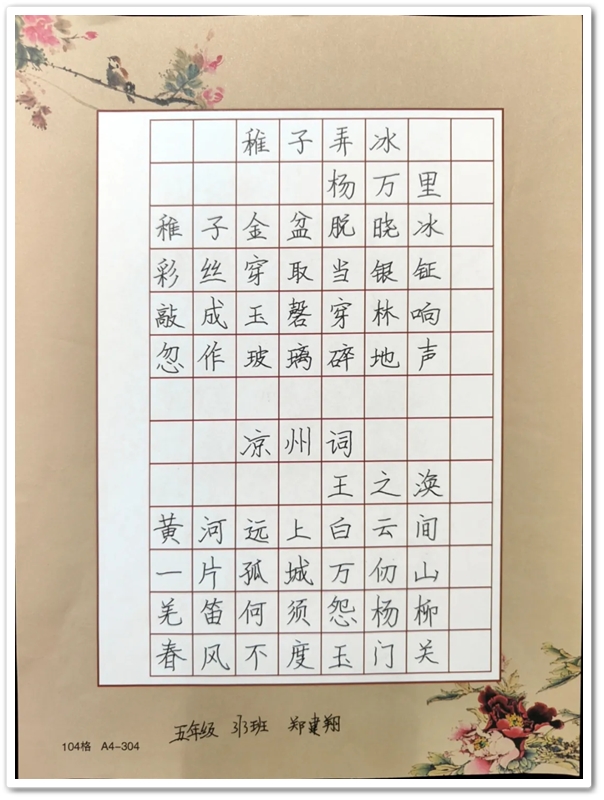 稚子弄冰
杨万里
稚子金盆脱晓冰
彩丝穿取当银钲
敲成玉磬穿林响
忽作玻璃碎地声
凉州词
王之涣
黄河远上白云间
一片孤城万仞山
羌笛何须怨杨柳
春风不度玉门关
五年级 3班 郑建翔
104格 A4-304